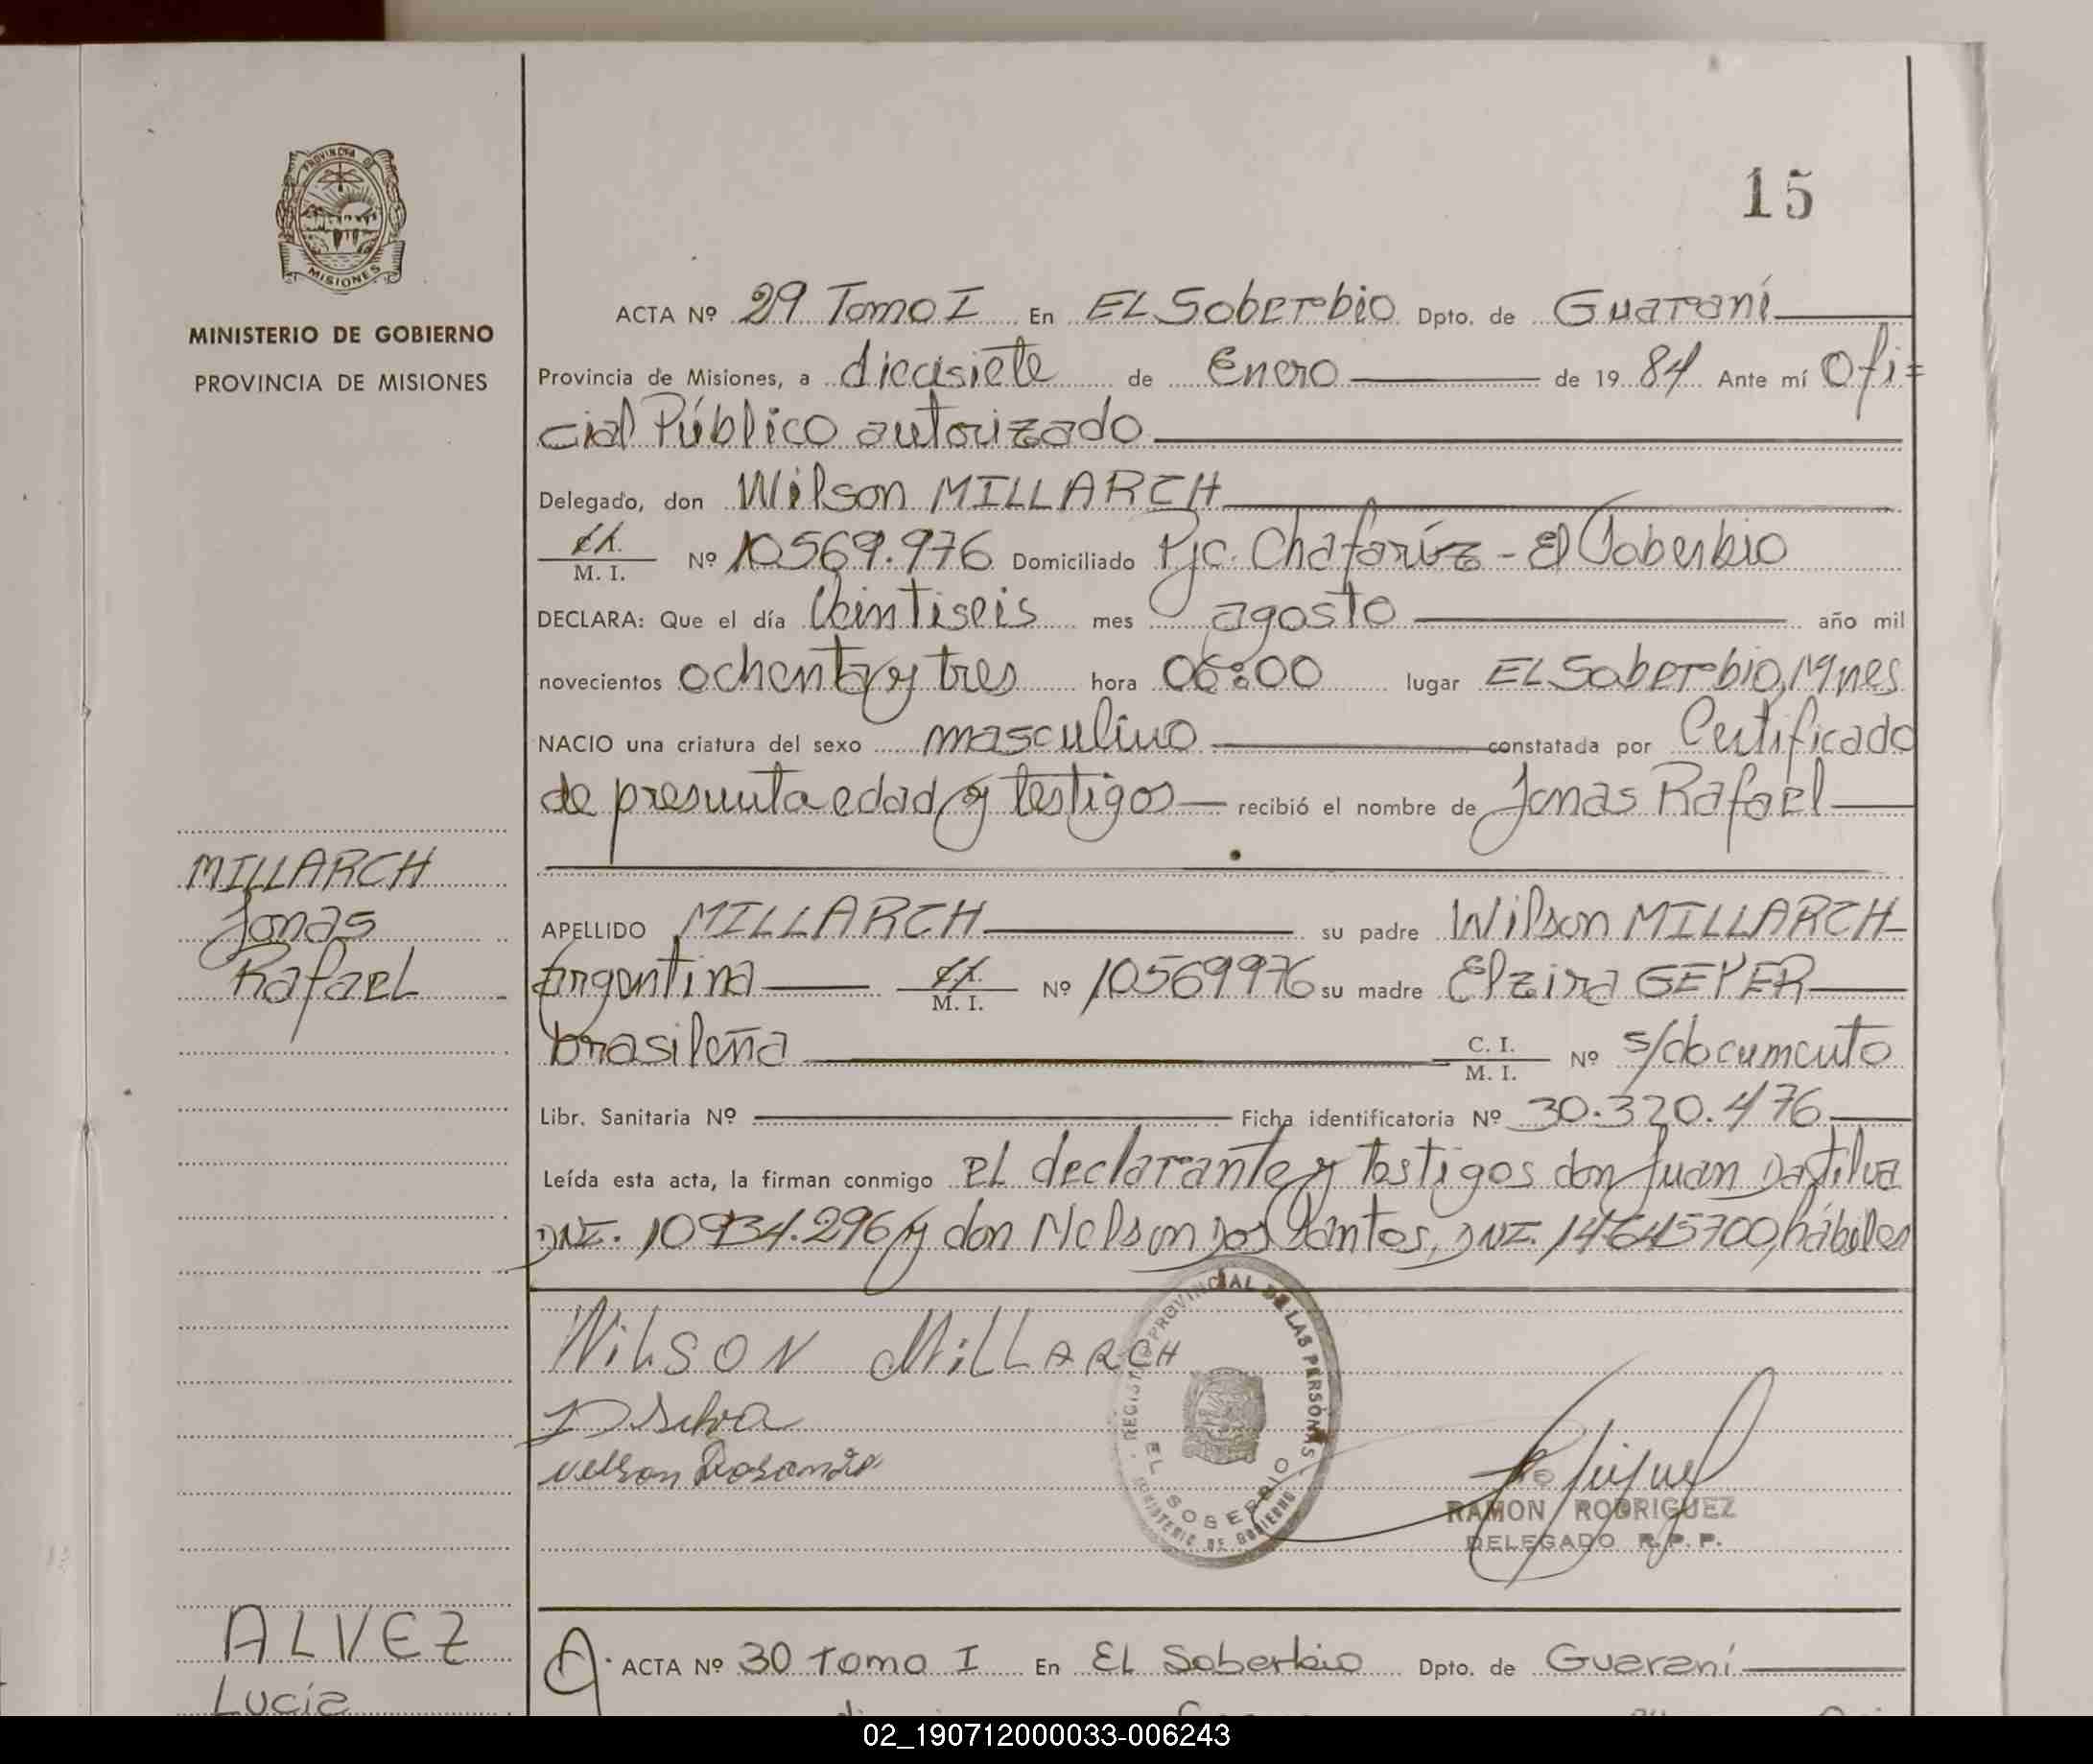 15
PROVINCIA DE
MISIONES
MINISTERIO DE GOBIERNO
PROVINCIA DE MISIONES
ACTA Nº 29 Tomo I En EL Soberbio Dpto. de Guaraní
Provincia de Misiones, a diecisiete de Enero de 19 84 Ante mí Ofi=
cial Público autorizado
Delegado, don Wilson MILLARCH
M. I. Nº 10.569.976 Domiciliado Pje. Chafaríz - El Soberbio
DECLARA: Que el día Veintiseis mes agosto año mil
novecientos ochenta y tres hora 06:00 lugar EL Soberbio, Mnes
NACIO una criatura del sexo masculino constatada por Certificado
de presunta edad y testigos recibió el nombre de Jonas Rafael
MILLARCH
Jonas
Rafael
APELLIDO MILLARCH su padre Wilson MILLARCH
Argentina M. I. Nº 10569976 su madre Elzira GEYER
brasileña C. I. M. I. Nº s/documento
Libr. Sanitaria Nº Ficha identificatoria Nº 30.320.476
Leída esta acta, la firman conmigo el declarante y testigos don Juan Da Silva
DNI. 10934.296 y don Nelson Dos Santos, DNI. 14645700, hábiles
WiLSON MiLLARCH
D Silva
Nelson
REGISTRO PROVINCIAL DE LAS PERSONAS
EL SOBERBIO
MINISTERIO DE GOBIERNO
RAMON RODRIGUEZ
DELEGADO R. P. P.
ALVEZ
Lucía
ACTA Nº 30 Tomo I En EL Soberbio Dpto. de Guaraní
02_190712000033-006243